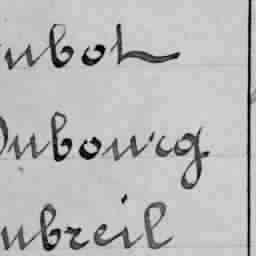 ubot
Dubourg
ubreil